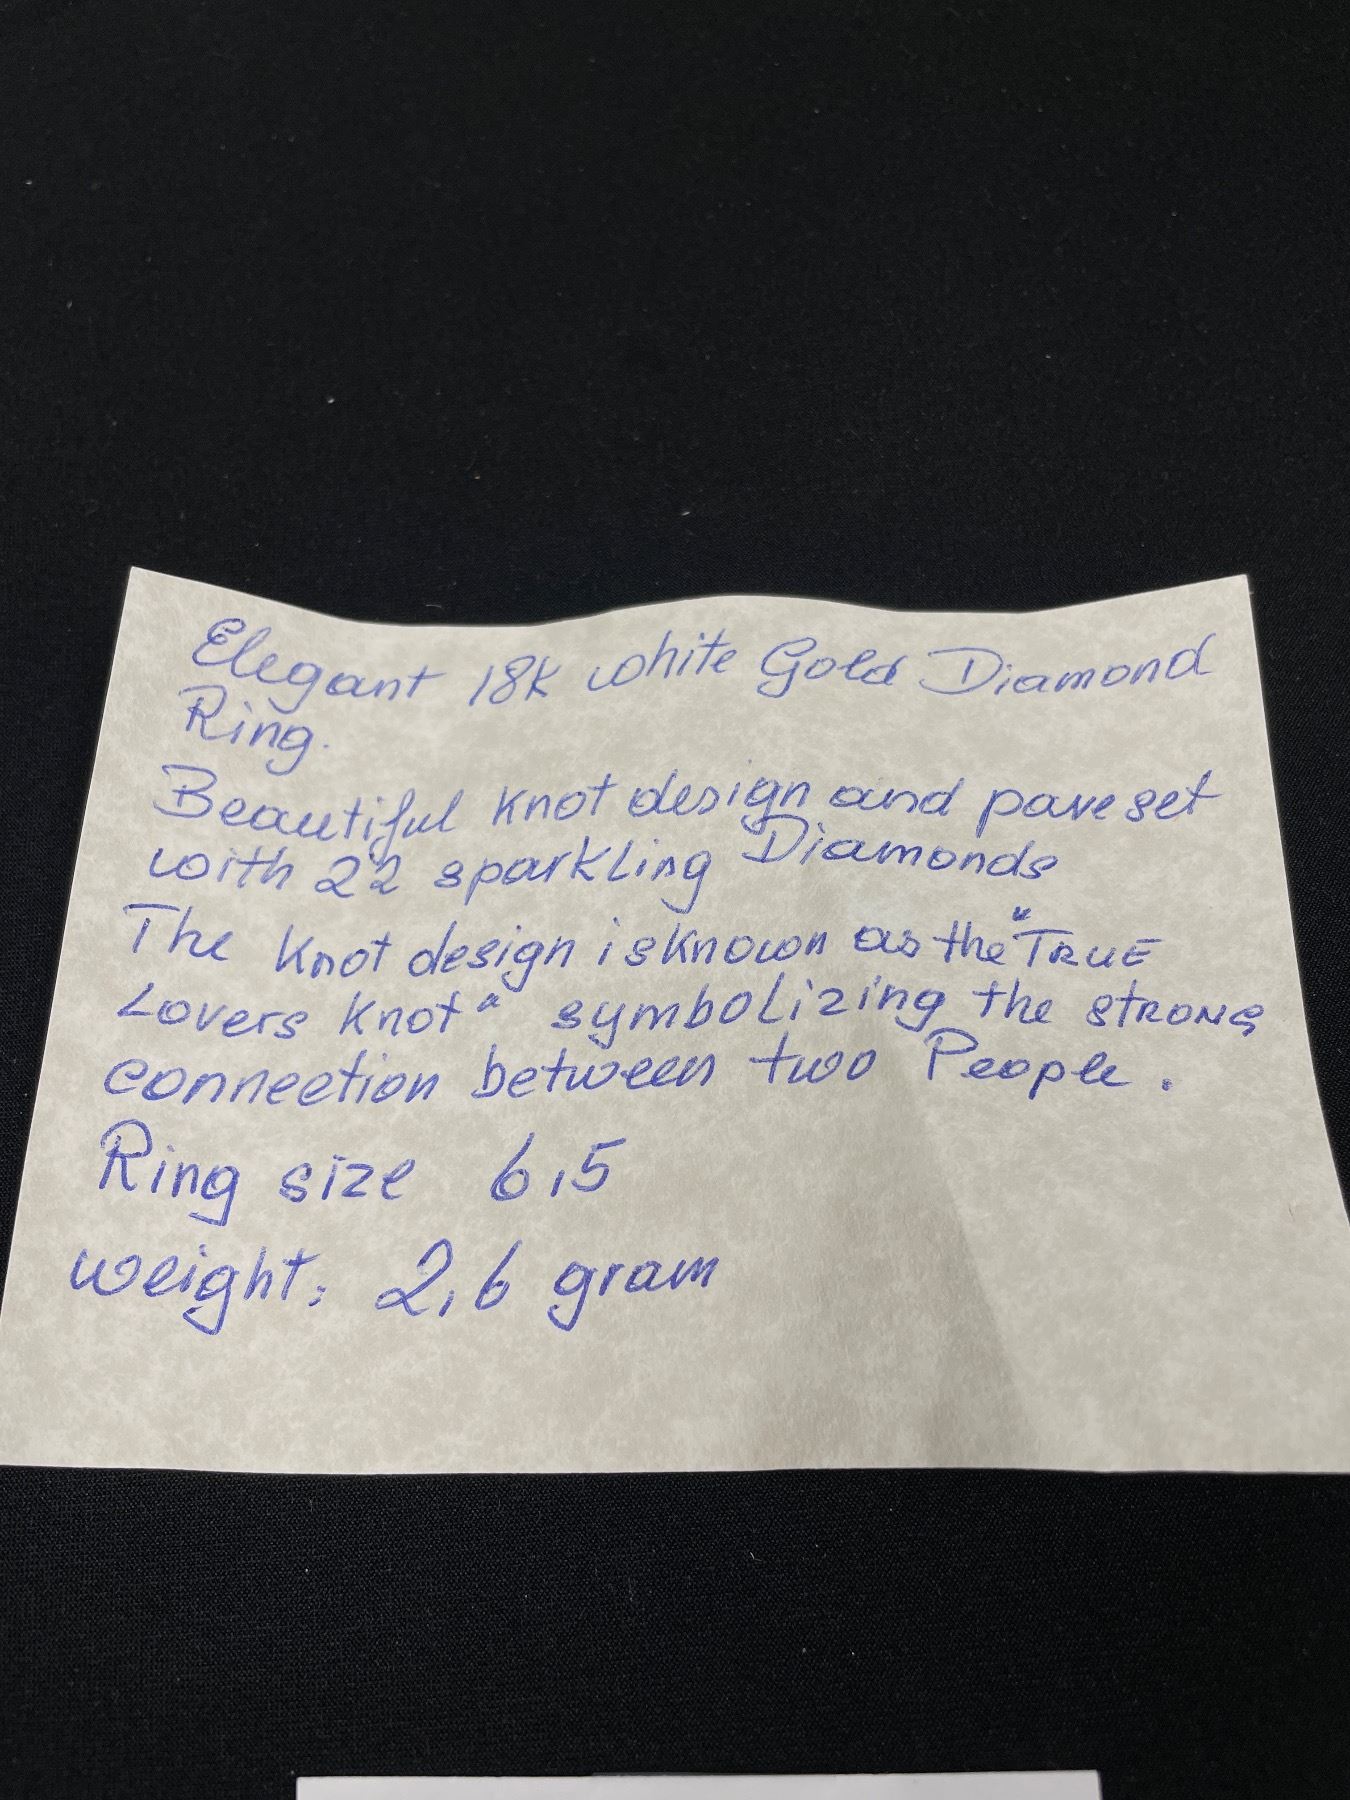 Elegant 18K white Gold Diamond
Ring.
Beautiful knot design and pave set
with 22 sparkling Diamonds
The knot design is known as the "TRUE
Lovers knot" symbolizing the strong
connection between two People.
Ring size 6,5
weight: 2,6 gram